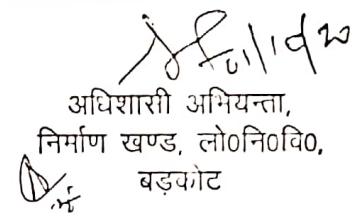 अधिशासी अभियन्ता,
निर्माण खण्ड, लो0नि0वि0,
बड़कोट